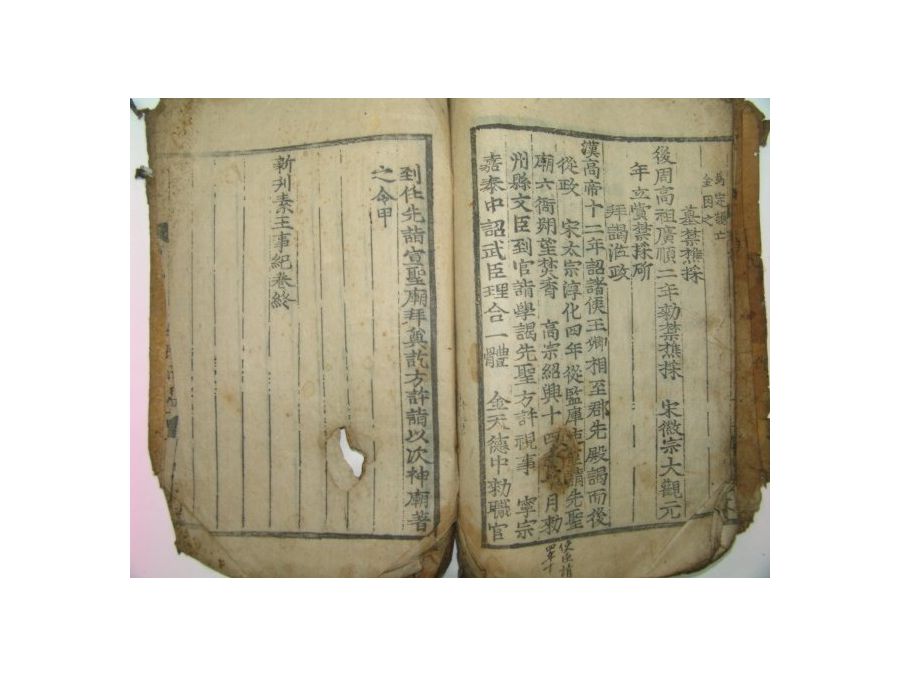 墓禁樵採
後周高祖廣順二年勑禁樵採 宋徽宗大觀元
年立賞禁採斫
拜謁涖政
漢高帝十二年詔諸侯王卿相至郡先殿謁而後
從政 宋太宗淳化四年從監庫請先聖
廟六衙朔望焚香 高宗紹興十四月勑
州縣文臣到官詣學謁先聖方許視事 寧宗
嘉泰中詔武臣理合一體 金天德中勑職官
使臣請
四年十
到任先詣宣聖廟拜奠訖方許詣以次神廟著
之命甲
新刋素王事紀卷終